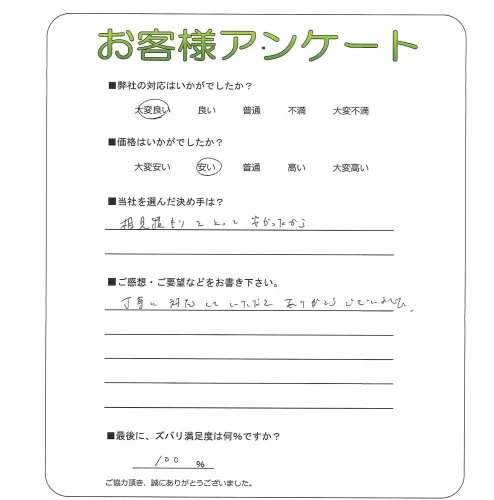 お客様アンケート
■弊社の対応はいかがでしたか？
大変良い 良い 普通 不満 大変不満
■価格はいかがでしたか？
大変安い 安い 普通 高い 大変高い
■当社を選んだ決め手は？
相見積もりをとって 安かったから
■ご感想・ご要望などをお書き下さい。
丁寧に対応していただき ありがとうございました。
■最後に、ズバリ満足度は何%ですか？
100 %
ご協力頂き、誠にありがとうございました。